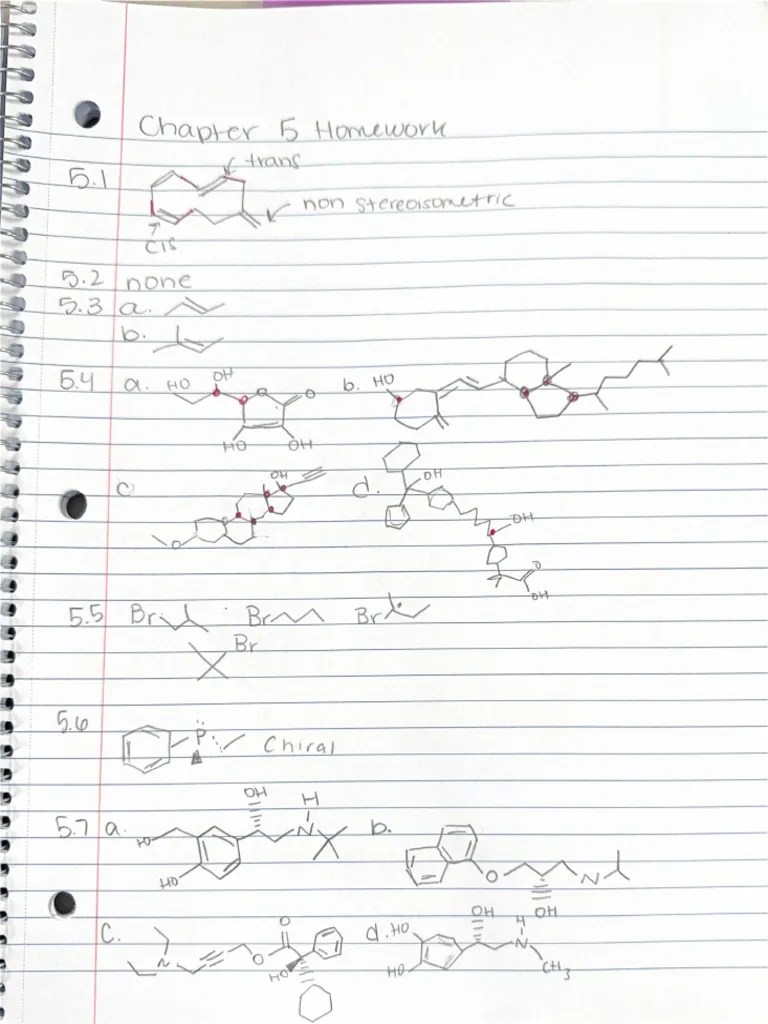 Chapter 5 Homework
5.1
trans
non stereoisometric
cis
5.2 none
5.3 a.
b.
5.4 a. HO OH O O HO OH
b. HO
c. OH O
d. OH OH O OH
5.5 Br Br Br
Br
5.6 P Chiral
5.7 a. HO HO OH H N
b. O OH N
c. N O O HO
d. HO HO OH H N CH3